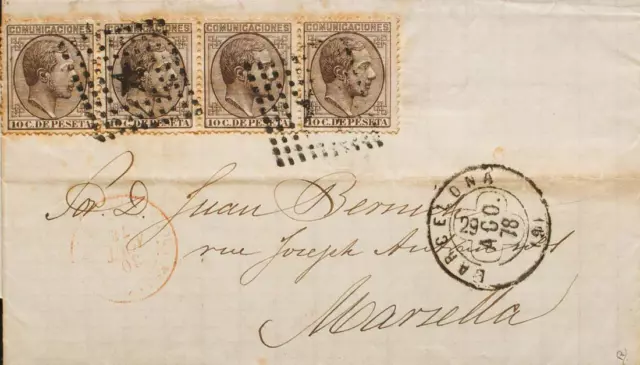 COMUNICACIONES COMUNICACIONES COMUNICACIONES COMUNICACIONES
10 C. DE PESETA 10 C. DE PESETA 10 C. DE PESETA 10 C. DE PESETA
Sr. D. Juan
BARCELONA
29 AGO. 78
rue Joseph
Marsella